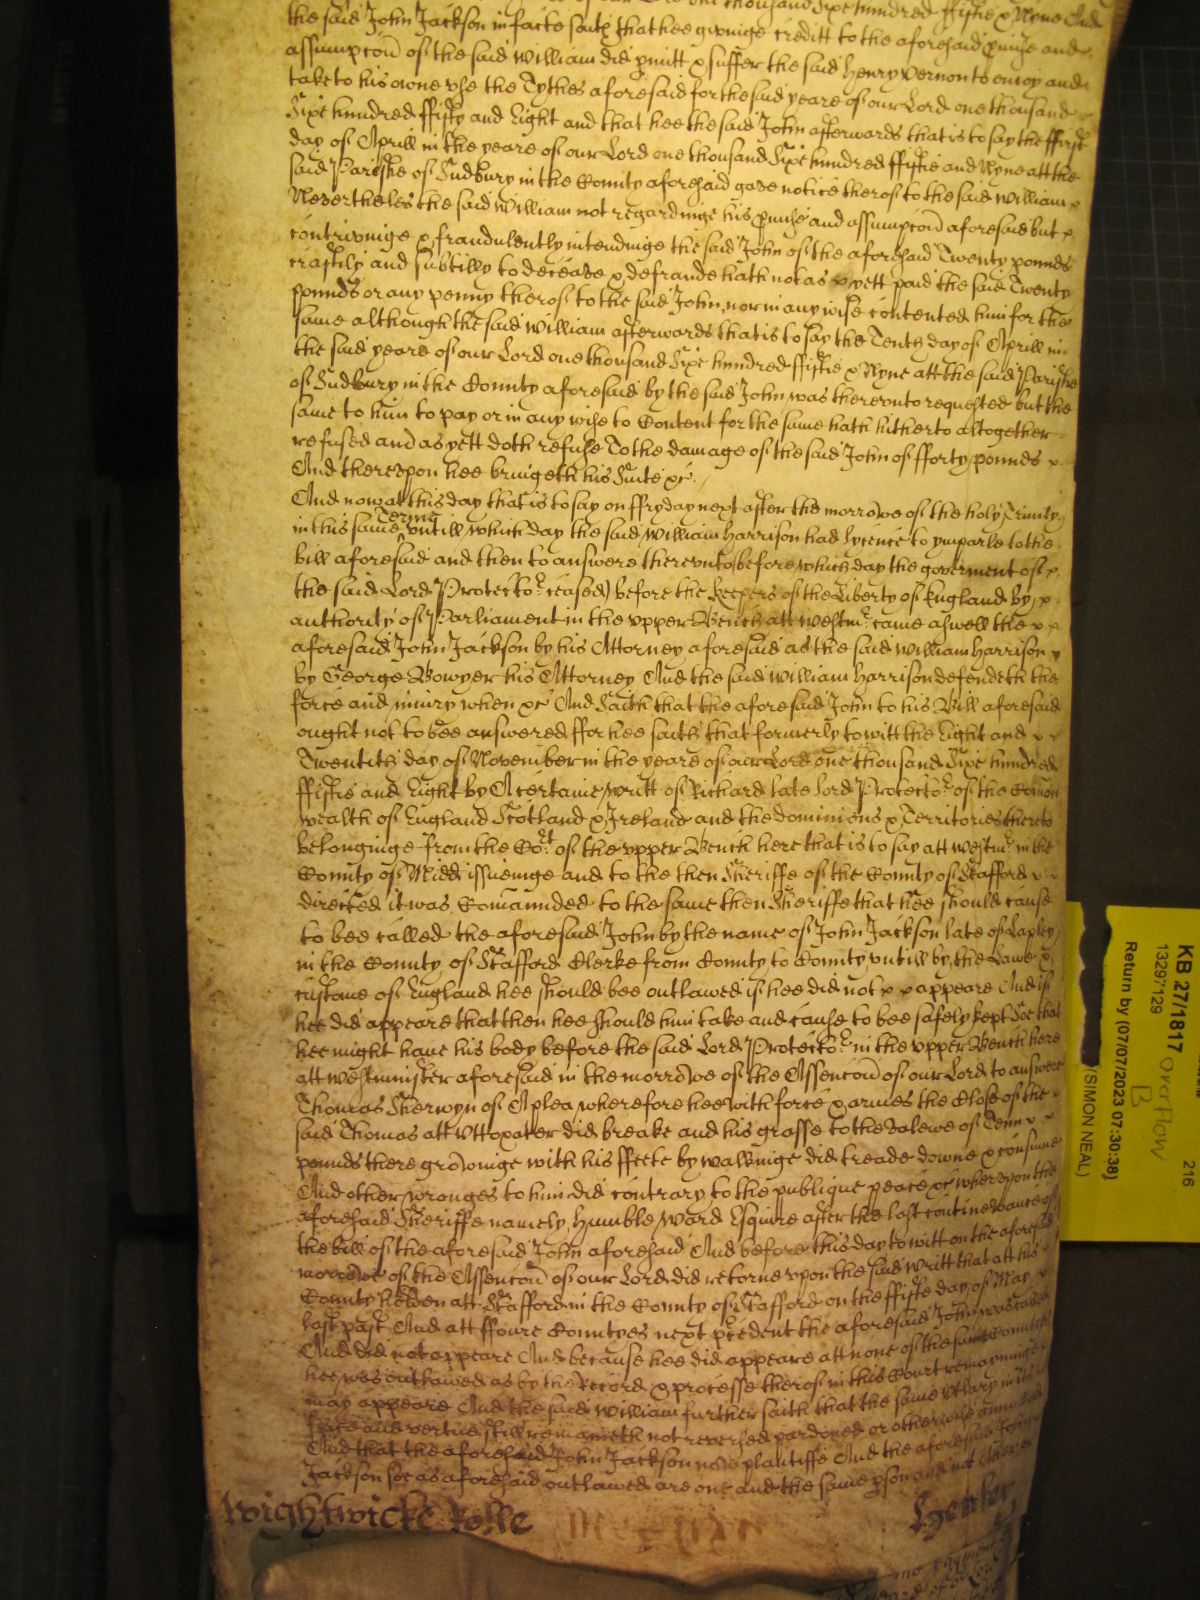 the said John Jackson in facte saith that hee givinge creditt to the aforesaid pmise and
assumpcon of the said William did pmitt & suffer the said Henry Vernon to enioy and
take to his owne vse the Tythes aforesaid for the said yeare of our Lord one thousand
Sixe hundred ffifty and Eight and that hee the said John afterwards that is to say the ffirst
day of Aprill in the yeare of our Lord one thousand Sixe hundred ffiftie and Nyne att the
said Parishe of Sudbury in the County aforesaid gave notice therof to the said William
Neverthelės the said William not regardinge his pmise and assumpcon aforesaid but
contrivinge & fraudulently intendinge the said John of the aforesaid Twenty pounds
craftily and subtilly to deceave & defraude hath not as yett paid the said Twenty
pounds or any penny therof to the said John, nor in any wise contented him for the
same although the said William afterwards that is to say the Tenth day of Aprill in
the said yeare of our Lord one thousand Sixe hundred ffiftie & Nyne att the said Parishe
of Sudbury in the County aforesaid by the said John was therevnto requested but the
same to him to pay or in any wise to Content for the same hath hitherto altogether
refused and as yett doth refuse To the damage of the said John of fforty pounds
And therevpon hee bringeth his Suite &c
And now att this day that is to say on ffryday next after the morrowe of the holy Trinity
in this same Terme vntill which day the said William Harrison had lycence to ymparle to the
bill aforesaid and then to answere therevnto (before which day the goverment of
the said Lord Protector ceased) before the keepers of the Liberty of England by
authority of Parliament in the vpper Bench att Westmr came aswell the
aforesaid John Jackson by his Attorney aforesaid as the said William Harrison
by George Bowyer his Attorney And the said William Harrison defendeth the
force and iniury when &c And Saith that the aforesaid John to his Bill aforesaid
ought not to bee answered ffor hee saith that formerly to witt the Eight and
Twentith day of November in the yeare of our Lord one thousand Sixe hundred
ffiftie and Eight by A certaine writt of Richard late Lord Protector of the Comon
wealth of England Scotland & Ireland and the dominions & Territories thereto
belonginge from the Cort of the vpper Bench here that is to say att Westmr in the
County of Midd issueinge and to the then Sheriffe of the County of Stafford
directed it was Comaunded to the same then Sheriffe that hee should cause
to bee called the aforesaid John by the name of John Jackson late of Lapley
in the County of Stafford Clerke from County to County vntill by the Lawe &
custome of England hee should bee outlawed if hee did not appeare And if
hee did appeare that then hee should him take and cause to bee safely kept Soe that
hee might have his body before the said Lord Protector in the vpper Bench here
att Westminster aforesaid in the morrowe of the Assencon of our Lord to answere
Thomas Sherwyn of A plea wherefore hee with force & armes the Close of the
said Thomas att Vttoxater did breake and his grasse to the valewe of Tenn
pounds there growinge with his ffeete by walkinge did treade downe & consume
And other wronges to him did contrary to the publique peace &c wherevpon the
aforesaid Sheriffe namely Humble Ward Esquire after the last continewance of
the bill of the aforesaid John aforesaid And before this day to witt on the aforesaid
morrowe of the Assencon of our Lord did retorne vpon the said writt that att his
County holden att Stafford in the County of Stafford on the ffifte day of May
last past And att ffoure Countyes next pcedent the aforesaid John was called
And did not appeare And because hee did appeare att none of the same Countyes
hee was outlawed as by the Record & processe therof in this Court remayninge
may appeare And the said William further saith that the same vtlary in its
force and vertue still remaineth not reversed pardoned or otherwise annulled
And that the aforesaid John Jackson now plantiffe And the aforesaid John
Jackson soe as aforesaid outlawed are one and the same pson and not divers
Wightwicke Rolle
Henley
KB 27/1817
13297129
216
overflow
B
Return by (07/07/2023 07:30:38)
(SIMON NEAL)